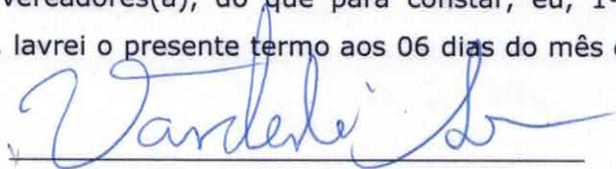 vereadores(a), do que para constar, eu, 1
lavrei o presente termo aos 06 dias do mês
Vanderlei